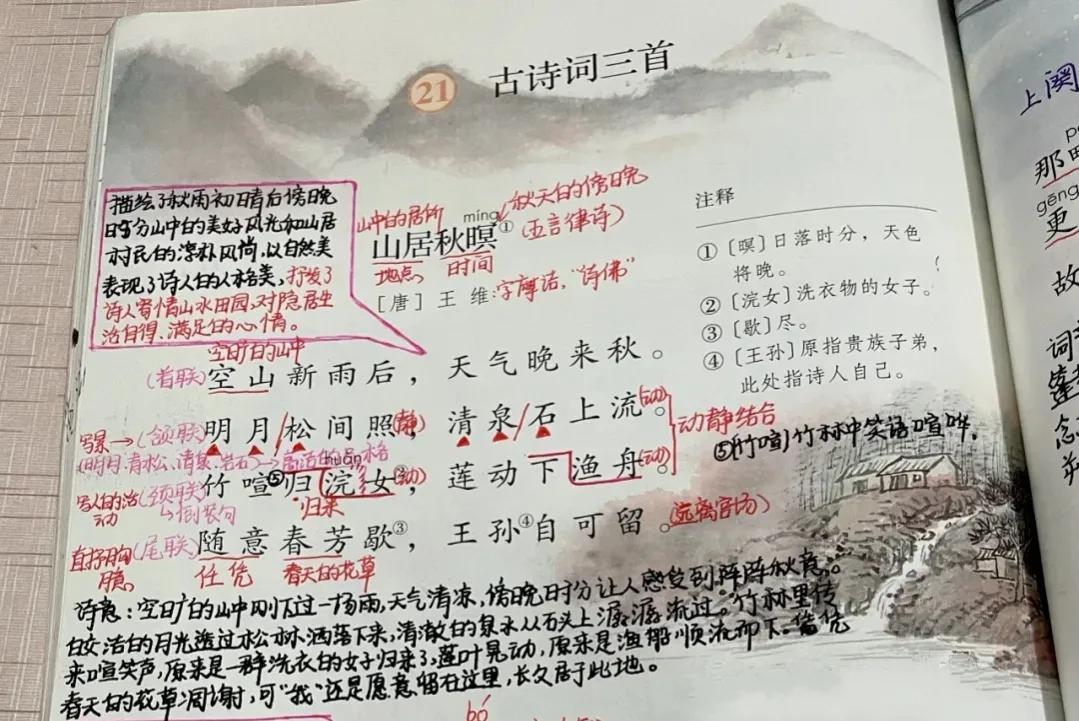 21 古诗词三首
上阕
描绘了秋雨初晴后傍晚
时分山中的美好风光和山居
村民的淳朴风尚,以自然美
表现了诗人的人格美,抒发了
诗人寄情山水田园,对隐居生
活自得、满足的心情。
山中的居所
秋天的傍晚
(五言律诗)
míng
山居秋暝①
地点
时间
[唐] 王 维:字摩诘,"诗佛"
注释
① 〔暝〕日落时分,天色
将晚。
② 〔浣女〕洗衣物的女子。
③ 〔歇〕尽。
④ 〔王孙〕原指贵族子弟,
此处指诗人自己。
⑤(竹喧)竹林中笑语喧哗。
空旷的山中
(首联)空山新雨后,天气晚来秋。
写景→(颔联)明月/松间照(静),清泉/石上流(动)。
动静结合
(明月、青松、清泉、岩石)→高洁的品格
huàn
写人的活动
(颈联)竹喧⑤归浣女②(动),莲动下渔舟(动)。
→倒装句
归来
直抒胸臆
(尾联)随意春芳歇③,王孙④自可留。(远离官场)
任凭
春天的花草
诗意:空旷的山中刚下过一场雨,天气清凉,傍晚时分让人感觉到阵阵秋意。
皎洁的月光透过松林洒落下来,清澈的泉水从石头上潺潺流过。竹林里传
来喧笑声,原来是一群洗衣的女子归来了,莲叶晃动,原来是渔船顺流而下。任凭
春天的花草凋谢,可"我"还是愿意留在这里,长久居于此地。
bó
那
gēng
更
故
词
念